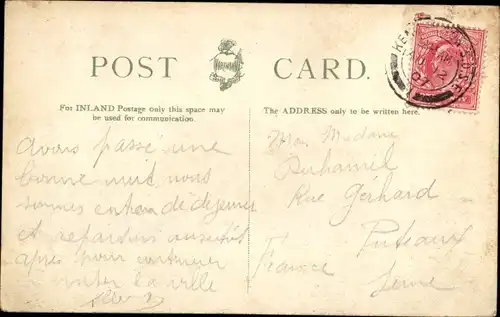 POST CARD.
For INLAND Postage only this space may
be used for communication.
The ADDRESS only to be written here.
avons passé une
bonne nuit, nous
sommes en train de déjeuner
et repartons aussitôt
après pour continuer
visiter la ville
Madame
Duhamil
Rue Gerhard
Puteaux
France
Seine